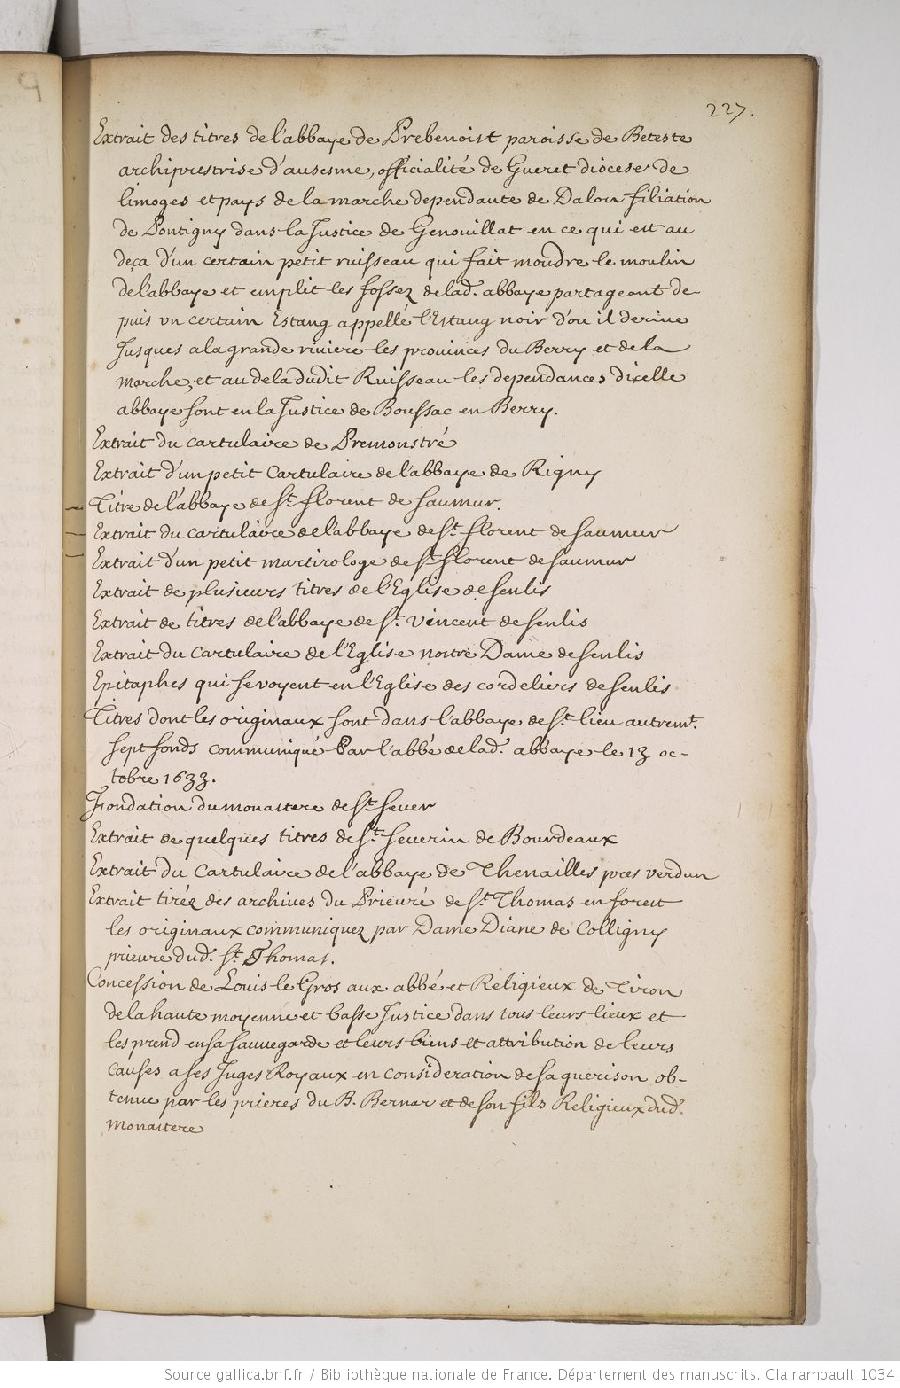 227.
Extrait des titres de l'abbaye de Prebenoist paroisse de Beteste
archiprestrise d'ausesme, officialité de Gueret diocese de
limoges et pays de la marche dependante de Dalon filiation
de Pontigny dans la Justice de Genouillat en ce qui est au
deça d'un certain petit ruisseau qui fait moudre le moulin
de l'abbaye et emplit les fossez de lad. abbaye partageant de
puis un certain Estang appellé l'Estang noir d'ou il derive
Jusques a la grande riviere les provinces du Berry et de la
marche, et au dela dudit Ruisseau les dependances dicelle
abbaye sont en la Justice de Boussac en Berry.
Extrait du cartulaire de Premonstré
Extrait d'un petit Cartulaire de l'abbaye de Rigny
Titre de l'abbaye de St. florent de saumur.
Extrait du cartulaire de l'abbaye de St. florent de saumur
Extrait d'un petit martirologe de St. florent de saumur
Extrait de plusieurs titres de l'Eglise de senlis
Extrait de titres de l'abbaye de St. Vincent de senlis
Extrait du Cartulaire de l'Eglise nostre Dame de senlis
Epitaphes qui se voyent en l'Eglise des cordeliers de senlis
Titres dont les originaux sont dans l'abbaye de St. lieu autremt.
sept fonds communiqué Par l'abbé de lad. abbaye le 13 oc-
tobre 1633.
Fondation du monastere de St. sever
Extrait de quelques titres de St. severin de Bourdeaux
Extrait du Cartulaire de l'abbaye de Thenailles pres verdun
Extrait tiréz des archives du Prieuré de St. Thomas en forest
les originaux communiquez par Dame Diane de Colligny
prieure dud. St. Thomas.
Concession de Louis le Gros aux abbé et Religieux de Tiron
de la haute moyenne et basse Justice dans tous leurs lieux et
les prend en sa sauvegarde et leurs biens et attribution de leurs
causes a ses Juges Royaux en consideration de sa guerison ob-
tenue par les prieres du B. Bernar et de son fils Religieux dud.
monastere
Source gallica.bnf.fr / Bibliothèque nationale de France. Département des manuscrits. Clairambault 1034